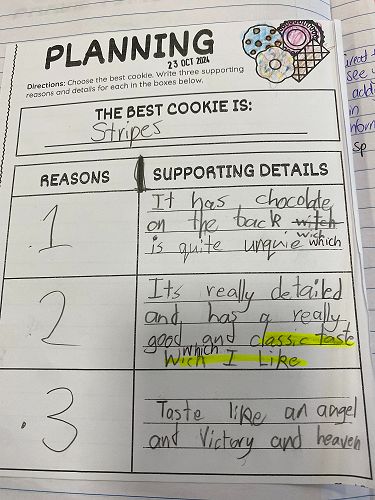 PLANNING
23 OCT 2024
Directions: Choose the best cookie. Write three supporting
reasons and details for each in the boxes below.
THE BEST COOKIE IS:
Stripes
REASONS
SUPPORTING DETAILS
.1
It has chocolate
on the back witch
wich
is quite unquie which
2
Its really detailed
and has a really
good and classic taste
which
Wich I Like
.3
Taste like an angel
and Victory and heaven
see
in
sp